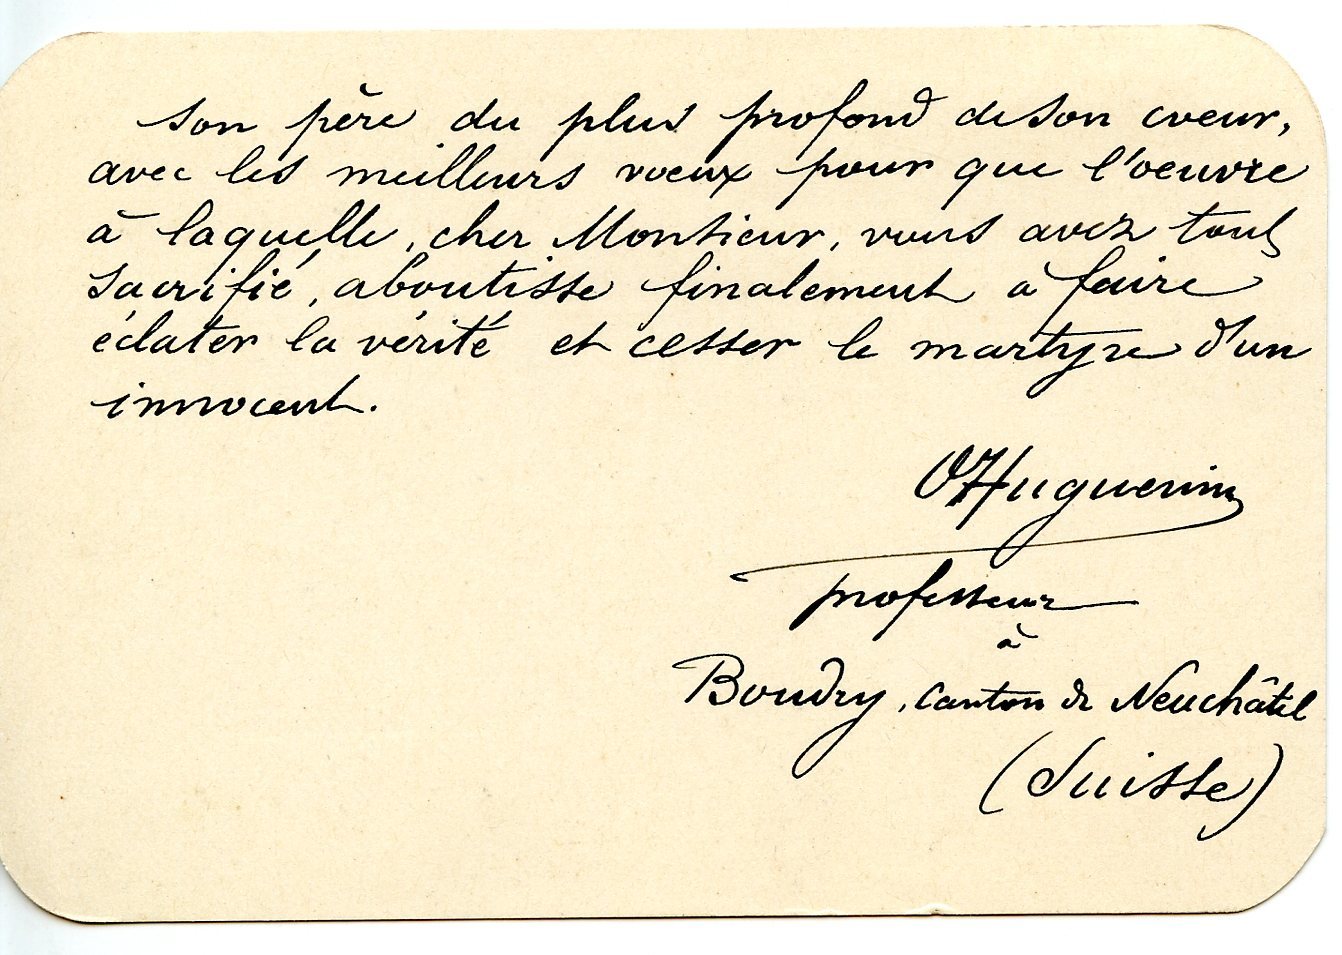 son père du plus profond de son cœur,
avec les meilleurs vœux pour que l'œuvre
à laquelle, cher Monsieur, vous avez tout
sacrifié, aboutisse finalement à faire
éclater la vérité et cesser le martyre d'un
innocent.
O Huguenin
professeur
à
Boudry, canton de Neuchâtel
(Suisse)